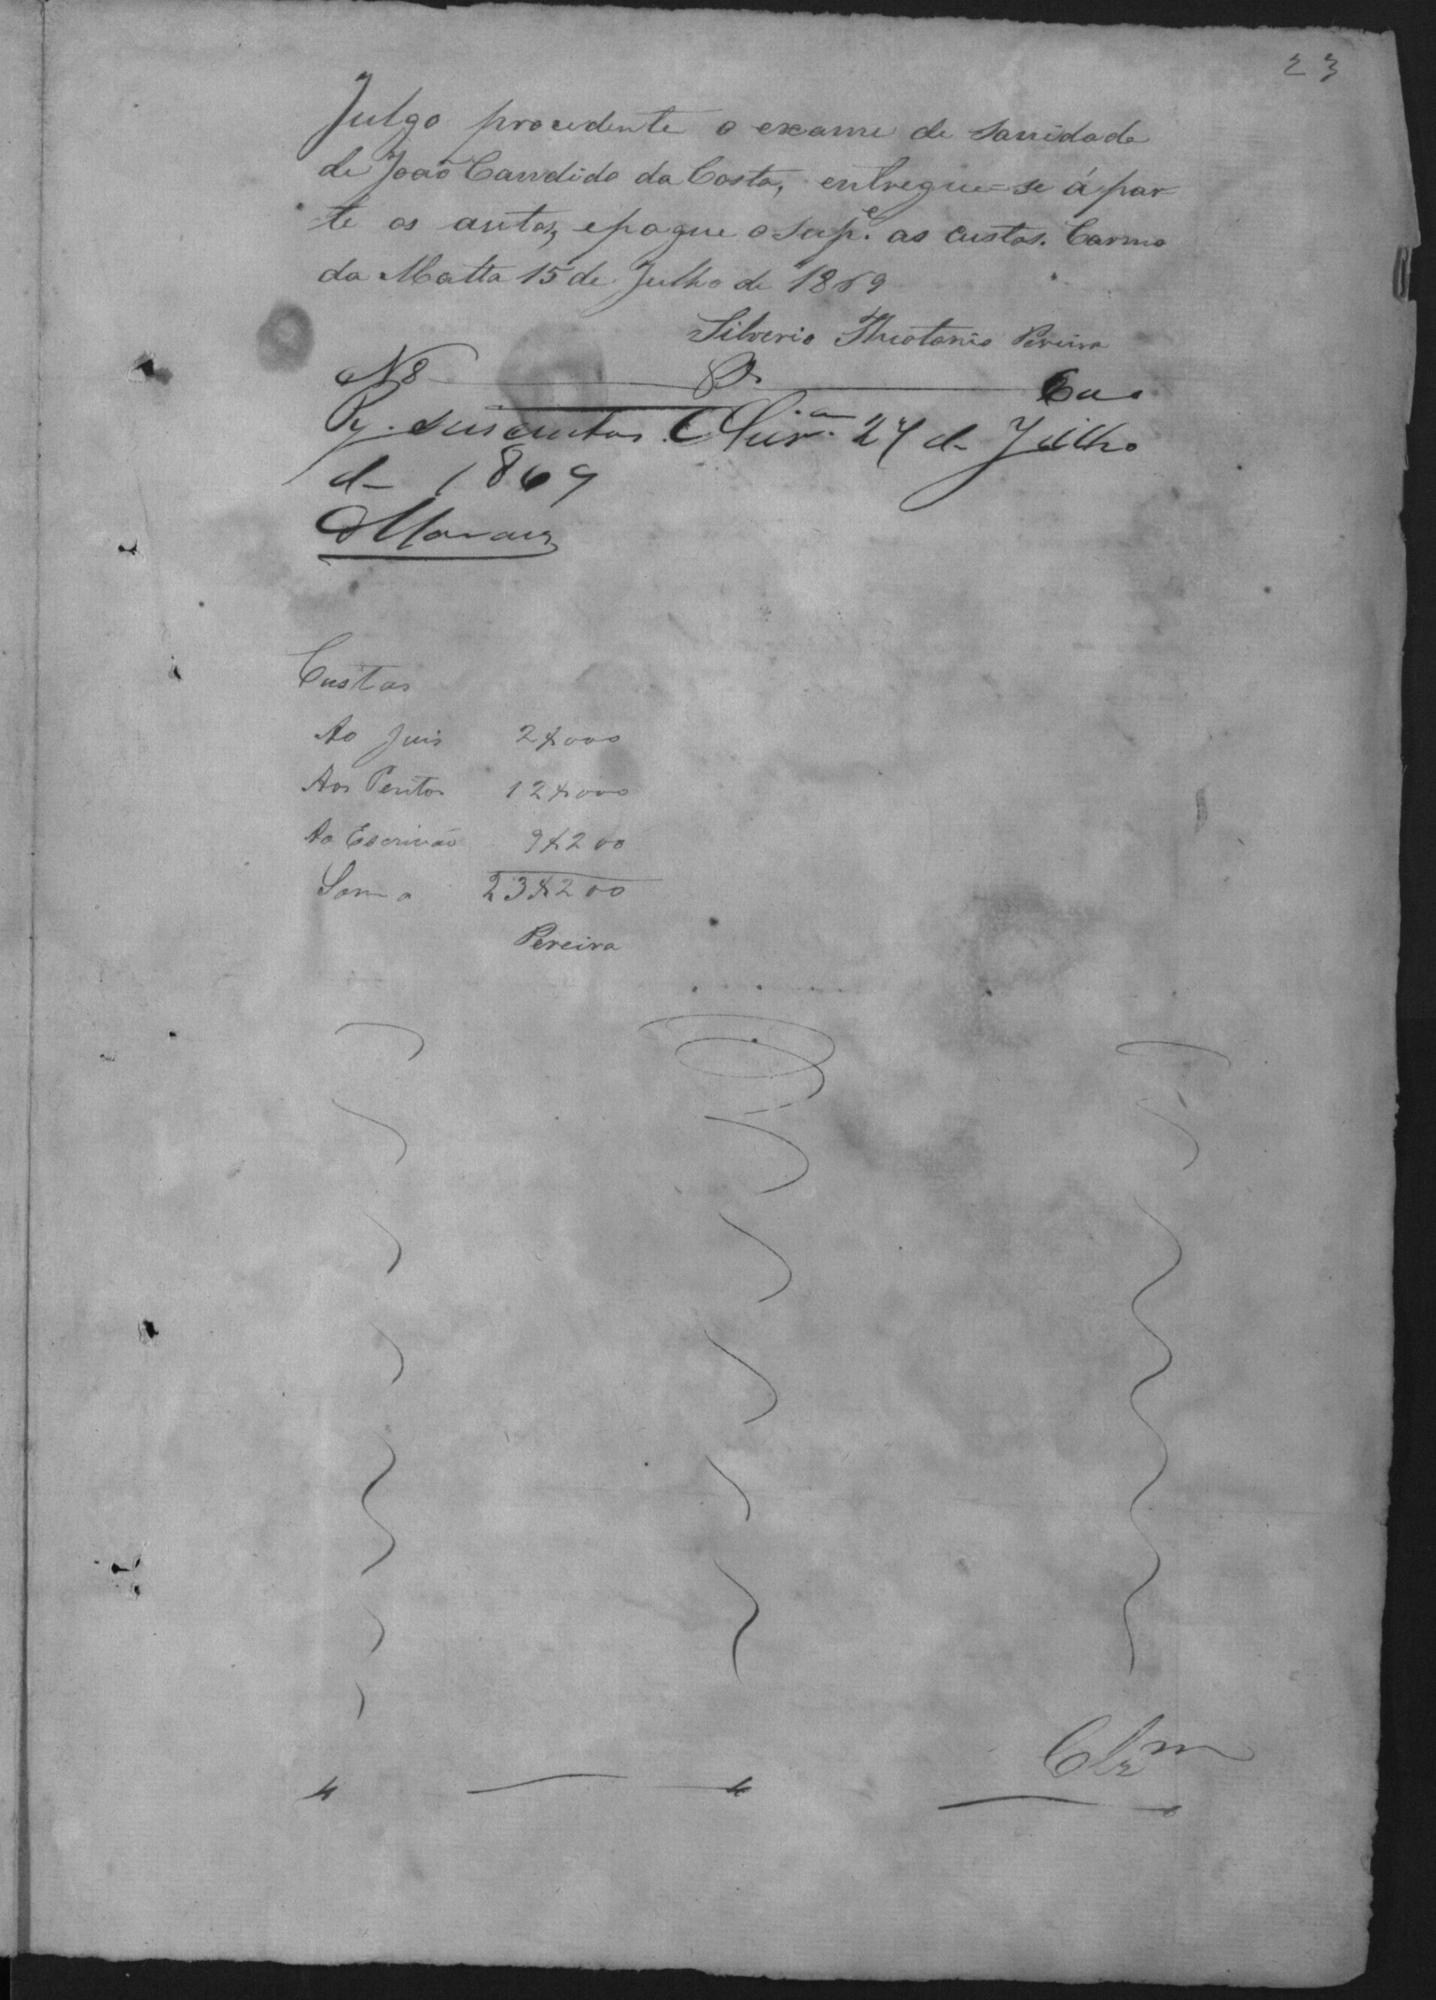 23
Julgo procedente o exame de sanidade
de João Candido da Costa, entregue-se á par-
te os autos, e pague o sup.e as custas. Carmo
da Matta 15 de Julho de 1869
Silverio Theotonio Pereira
N 8
Pg. duzentos Olivr.a 27 de Julho
de 1869
Moraes
Custas
Ao Juis 2$000
Aos Peritos 12$000
Ao Escrivão 9$200
Soma 23$200
Pereira